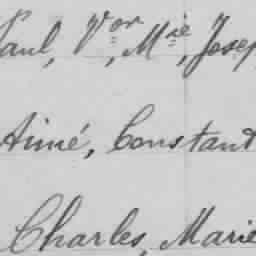 Paul, Vor, Mie, Josep
Aimé, Constant
Charles, Marie